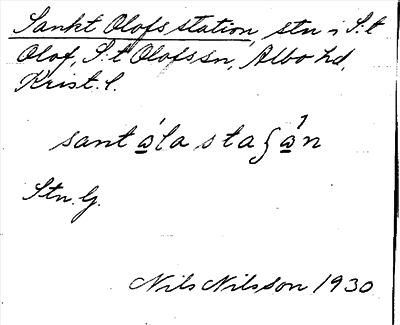 Sankt Olofs station, stn i S:t
Olof, S:t Olofs sn, Albo hd,
Krist. l.
santó̲la staʃó̲n
Stn. G.
Nils Nilsson 1930